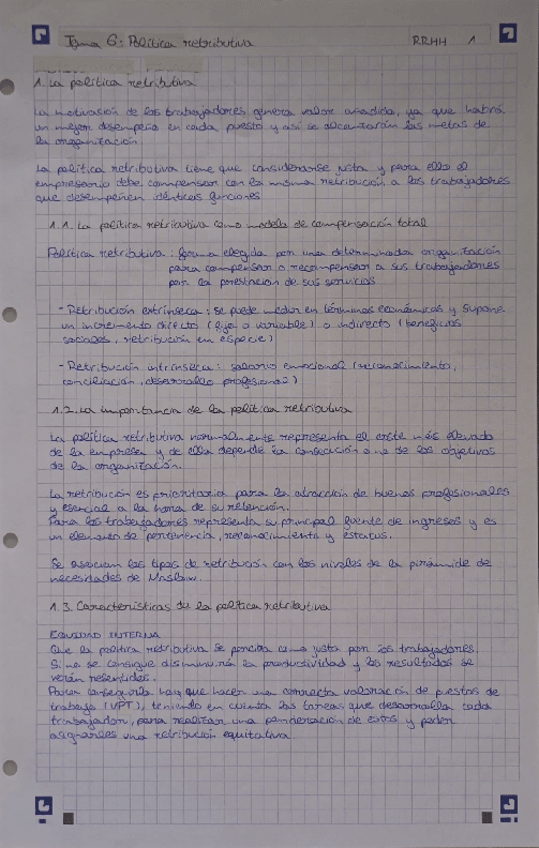 Tema 6: Política retributiva RRHH 1
1. La política retributiva
La motivación de los trabajadores genera valor añadido, ya que habrá
un mejor desempeño en cada puesto y así se alcanzarán las metas de
la organización
La política retributiva tiene que considerarse justa y para ello el
empresario debe compensar con la misma retribución a los trabajadores
que desempeñen idénticas funciones
1.1. La política retributiva como modelo de compensación total
Política retributiva: forma elegida por una determinada organización
para compensar o recompensar a sus trabajadores
por la prestación de sus servicios
- Retribución extrínseca: se puede medir en términos económicos y supone
un incremento directo (fijo o variable) o indirecto (beneficios
sociales, retribución en especie)
- Retribución intrínseca: salario emocional (reconocimiento,
conciliación, desarrollo profesional)
1.2. La importancia de la política retributiva
La política retributiva normalmente representa el coste más elevado
de la empresa y de ella depende la consecución o no de los objetivos
de la organización.
La retribución es prioritaria para la atracción de buenos profesionales
y esencial a la hora de su retención.
Para los trabajadores representa su principal fuente de ingresos y es
un elemento de pertenencia, reconocimiento y estatus.
Se asocian los tipos de retribución con los niveles de la pirámide de
necesidades de Maslow.
1.3. Características de la política retributiva
EQUIDAD INTERNA
Que la política retributiva se perciba como justa por los trabajadores.
Si no se consigue disminuirá la productividad y los resultados se
verán resentidos.
Para conseguirla hay que hacer una correcta valoración de puestos de
trabajo (VPT), teniendo en cuenta las tareas que desarrolla cada
trabajador, para realizar una ponderación de estos y poder
asignarles una retribución equitativa